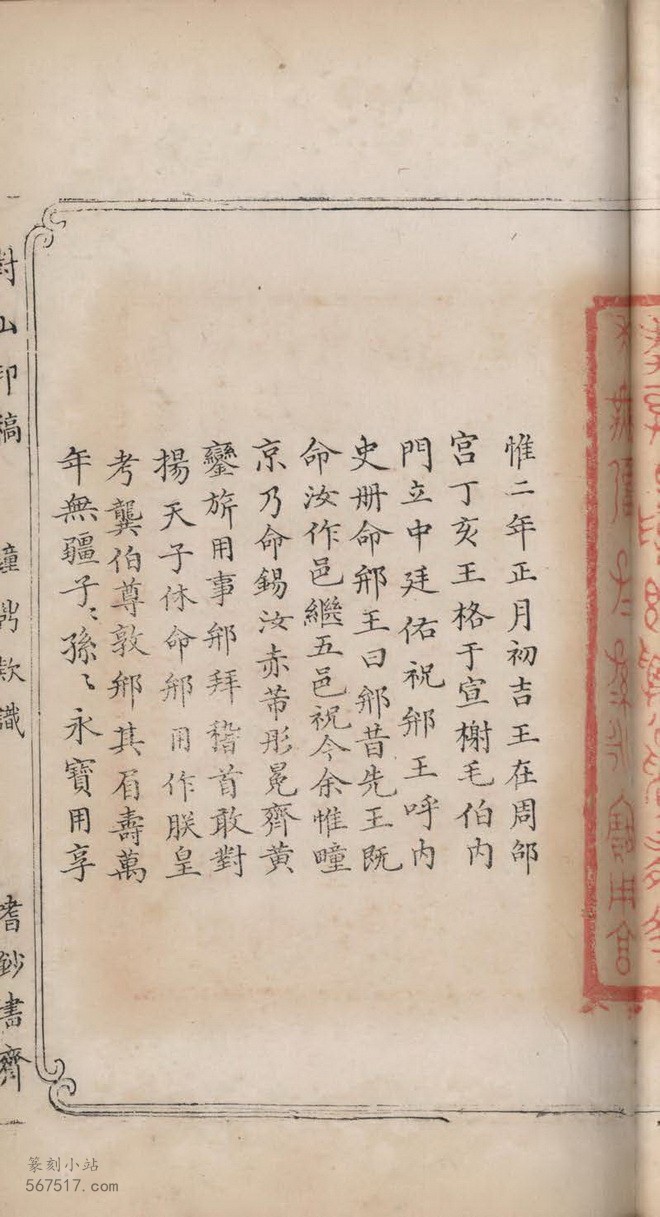 惟二年正月初吉王在周邵
宫丁亥王格于宣榭毛伯内
門立中廷佑祝鄉王呼内
史册命鄉王曰鄉昔先王既
命汝作邑繼五邑祝今余惟疃
京乃命錫汝赤芾彤冕齊黄
鑾旂用事鄉拜稽首敢對
揚天子休命鄉用作朕皇
考龔伯尊敦鄉其眉壽萬
年無疆子〻孫〻永寶用享
對山印稿
款識
耆鈔書齋
篆刻小站
567517.com